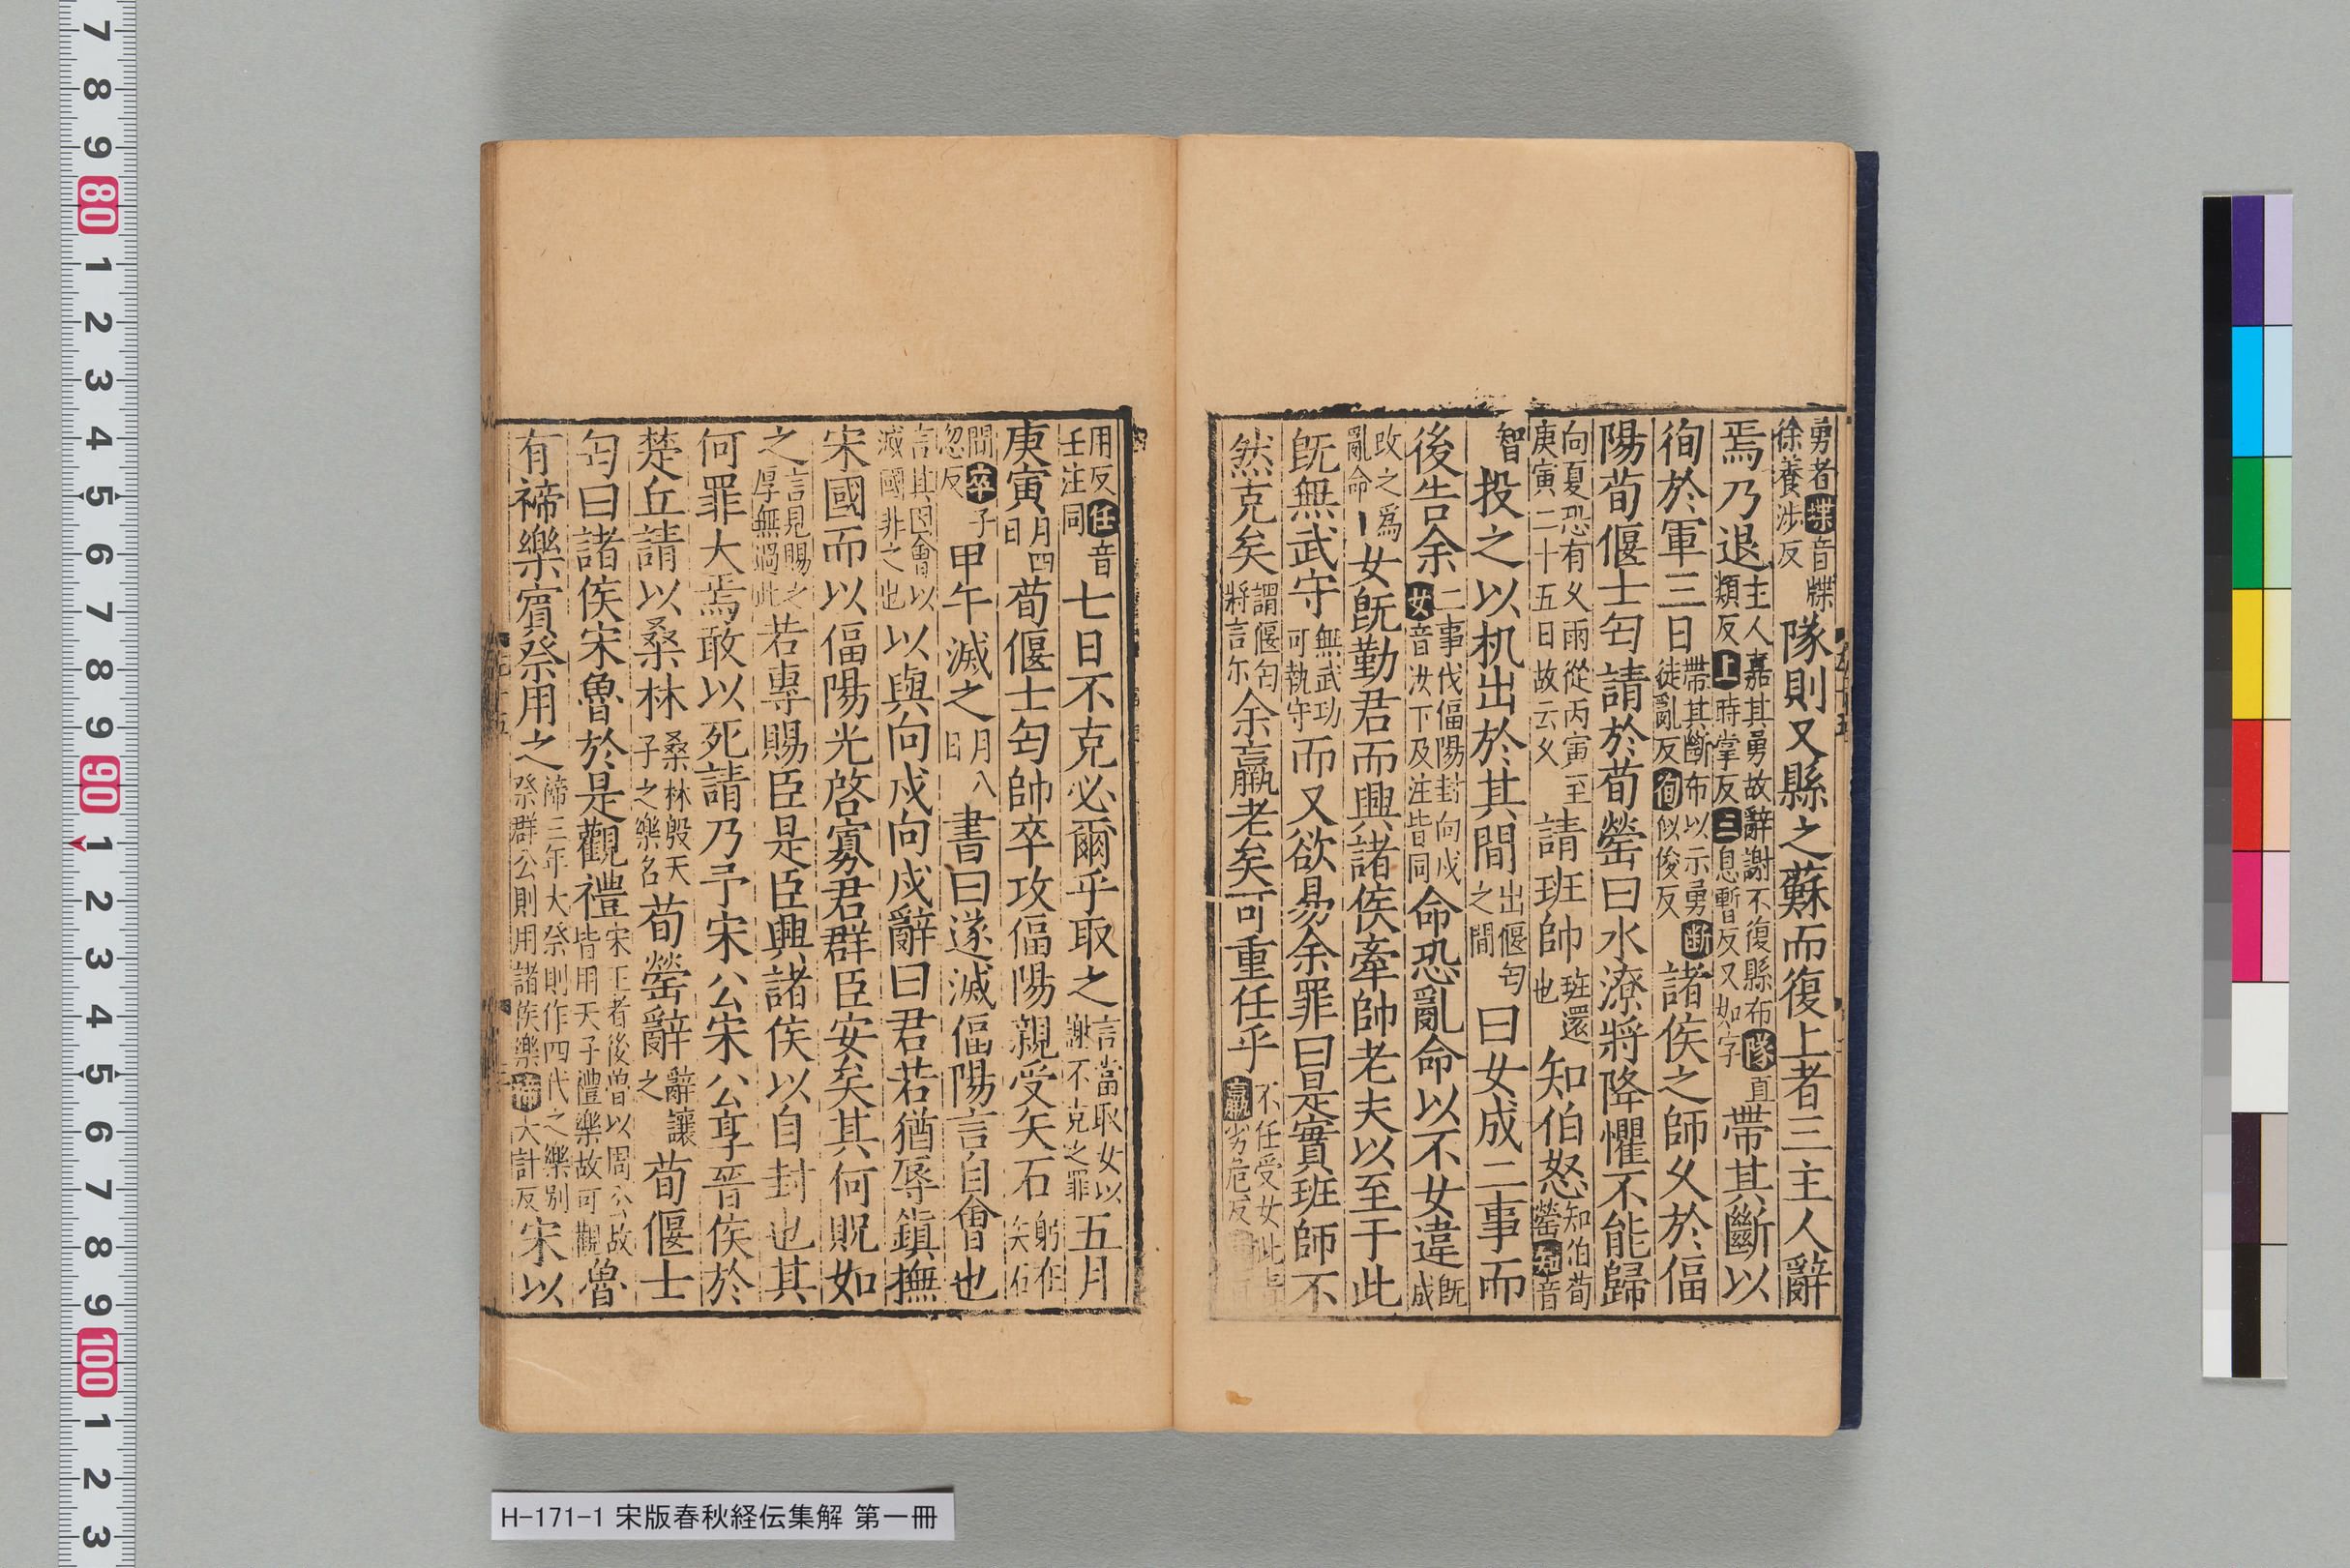 勇者堞音牒徐養涉反隊則又縣之蘇而復上者三主人辭
焉乃退主人嘉其勇故辭謝不復縣布隊直類反上時掌反三息暫反又如字帶其斷以
徇於軍三日帶其斷布以示勇断徒亂反徇似俊反諸侯之師久於偪
陽荀偃士匄請於荀罃曰水潦將降懼不能歸
向夏恐有久雨從丙寅至庚寅二十五日故云久請班帥班還也知伯怒知伯荀罃知音
智投之以机出於其間出偃匄之間曰女成二事而
後告余二事伐偪陽封向戌女音汝下及注皆同命恐亂命以不女違既成
改之爲亂命女既勤君而興諸侯牽帥老夫以至于此
既無武守無武功可執守而又欲易余罪曰是實班師不
然克矣謂偃匄將言尓余羸老矣可重任乎不任受女此責羸劣危反
用反任音壬注同七日不克必爾乎取之言當取女以謝不克之罪五月
庚寅月四日荀偃士匄帥卒攻偪陽親受矢石躬在矢石
間卒子忽反甲午滅之月八日書曰遂滅偪陽言自會也
言其因會以滅國非之也以與向戌向戌辭曰君若猶辱鎮撫
宋國而以偪陽光啓寡君群臣安矣其何貺如
之言見賜之厚無過此若專賜臣是臣興諸侯以自封也其
何罪大焉敢以死請乃予宋公宋公享晉侯於
楚丘請以桑林桑林殷天子之樂名荀罃辭辭讓之荀偃士
匄曰諸侯宋魯於是觀禮宋王者後魯以周公故皆用天子禮樂故可觀魯
有禘樂賓祭用之禘三年大祭則作四代之樂別祭群公則用諸侯樂禘大計反宋以
H-171-1 宋版春秋経伝集解 第一冊
7 8 9 80 1 2 3 4 5 6 7 8 9 90 1 2 3 4 5 6 7 8 9 100 1 2 3